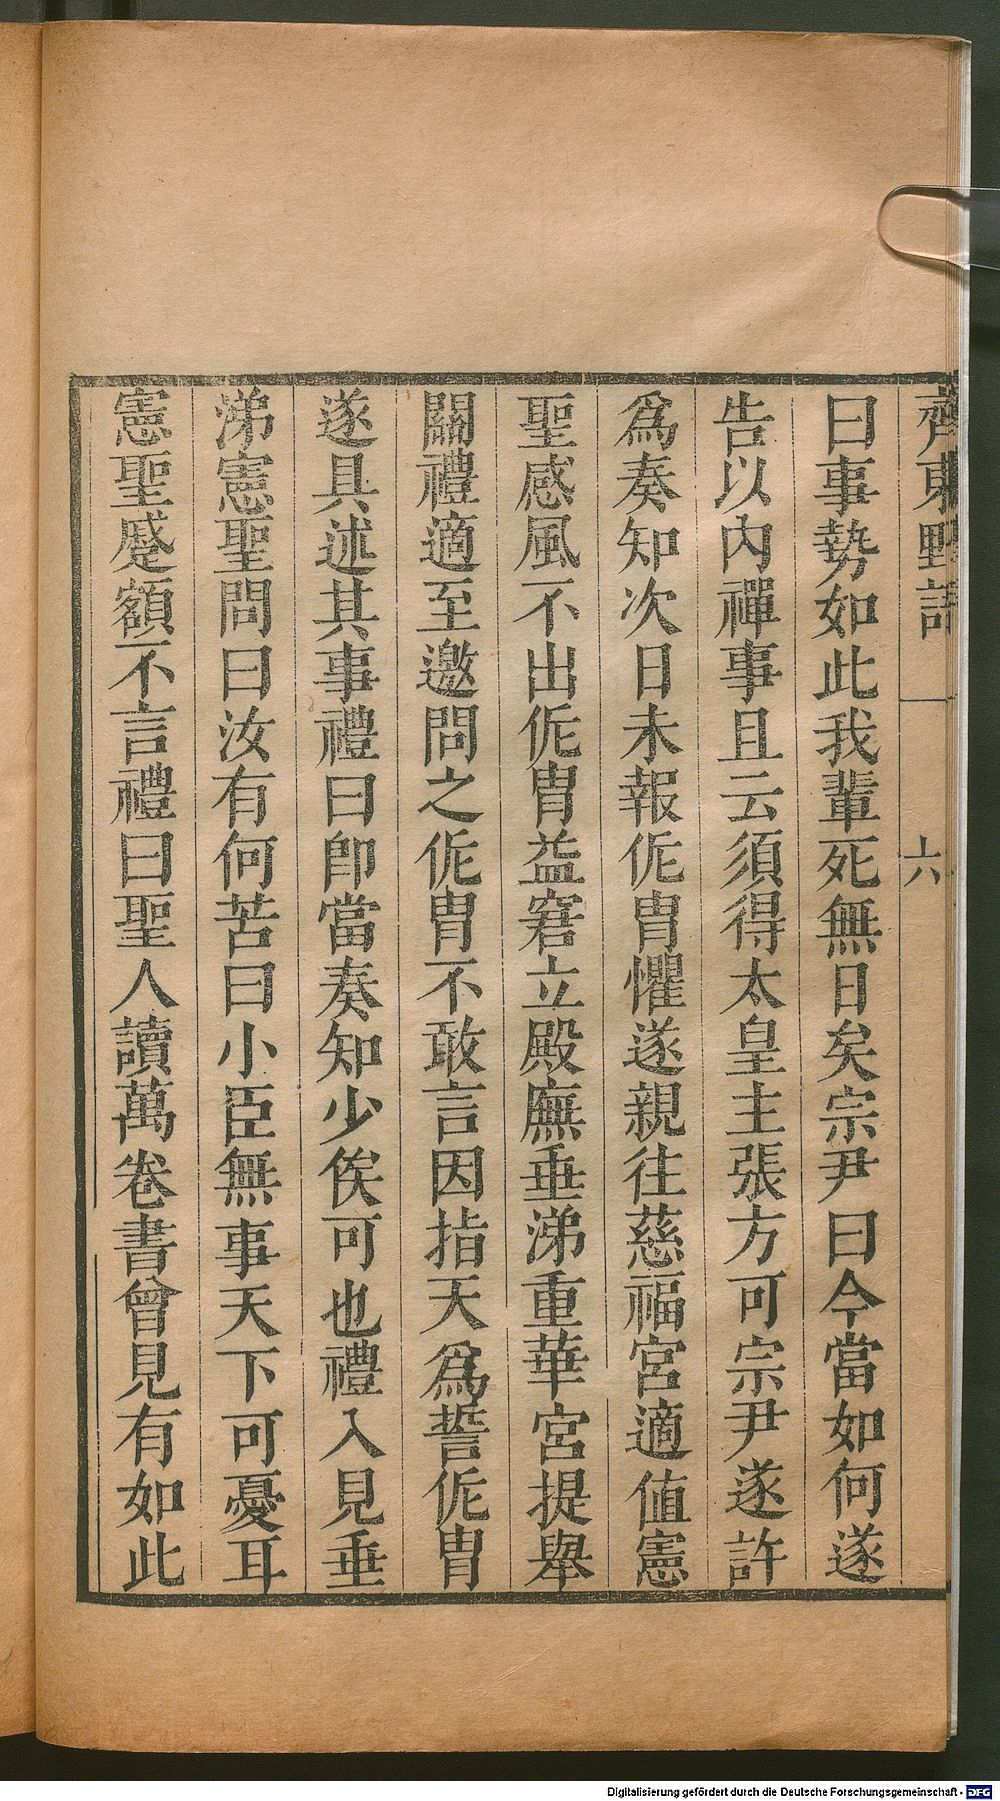 齊東野語
六
曰事勢如此我輩死無日矣宗尹曰今當如何遂
告以內禪事且云須得太皇主張方可宗尹遂許
爲奏知次日未報侂冑懼遂親往慈福宮適值憲
聖感風不出侂冑益窘立殿廡垂涕重華宮提舉
關禮適至邀問之侂冑不敢言因指天爲誓侂冑
遂具述其事禮曰卽當奏知少俟可也禮入見垂
涕憲聖問曰汝有何苦曰小臣無事天下可憂耳
憲聖蹙額不言禮曰聖人讀萬卷書曾見有如此
Digitalisierung gefördert durch die Deutsche Forschungsgemeinschaft - DFG